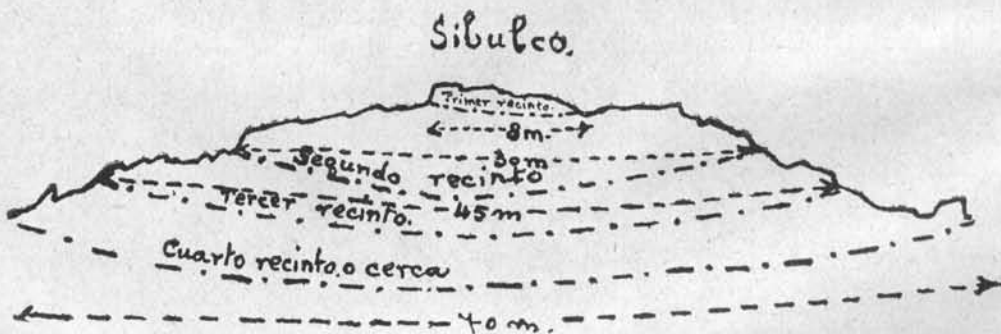 Sibulco.
Primer recinto.
8m.
30m
Segundo recinto
Tercer recinto. 45 m
Cuarto recinto o cerca
70 m.